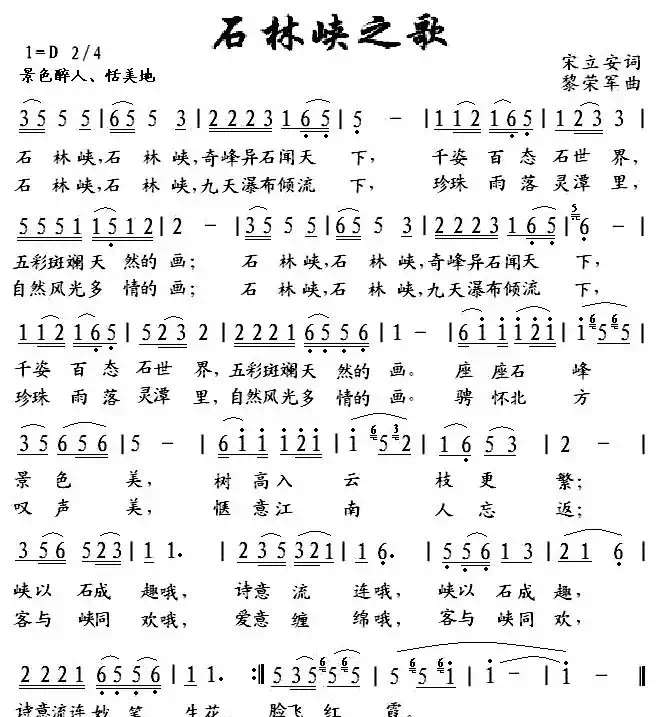 石林峡之歌
1=D 2/4
宋立安词
景色醉人、恬美地
黎荣军曲
3 5 5 5 | 6 5 5 3 | 2 2 2 3 1 6 5 | 5 － | 1 1 2 1 6 5 | 1 2 3 3 |
石 林 峡,石 林 峡,奇峰异石闻天 下, 千姿 百 态 石世 界,
石 林 峡,石 林 峡,九天瀑布倾流 下, 珍珠 雨 落 灵潭 里,
5 5 5 1 1 5 1 2 | 2 － | 3 5 5 5 | 6 5 5 3 | 2 2 2 3 1 6 5 | 5 6 － |
五彩斑斓天 然的 画; 石 林 峡,石 林 峡,奇峰异石闻天 下,
自然风光多 情的 画; 石 林 峡,石 林 峡,九天瀑布倾流 下,
1 1 2 1 6 5 | 5 2 3 2 | 2 2 2 1 6 5 5 6 | 1 － | 6 1 1 1 2 1 | 1 6 5 6 5 |
千姿 百 态 石世 界,五彩斑斓天 然的 画。 座 座石 峰
珍珠 雨 落 灵潭 里,自然风光多 情的 画。 骋 怀北 方
3 5 6 5 6 | 5 － | 6 1 1 1 2 1 | 1 6 5 3 | 1 6 5 3 | 2 － |
景 色 美, 树 高入 云 枝 更 繁;
叹 声 美, 惬 意江 南 人 忘 返;
3 5 6 5 2 3 | 1 1. | 2 3 5 3 2 1 | 1 6. | 5 5 6 1 3 | 2 1 6 |
峡以 石成 趣哦, 诗意 流 连哦, 峡以 石成 趣,
客与 峡同 欢哦, 爱意 缠 绵哦, 客与 峡同 欢,
2 2 2 1 6 5 5 6 | 1 1. :‖ 5 3 5 6 5 6 5 | 5 5 6 1 | 1 － | 1 － ‖
诗意流连 妙 笔 生花。 脸飞 红 霞。